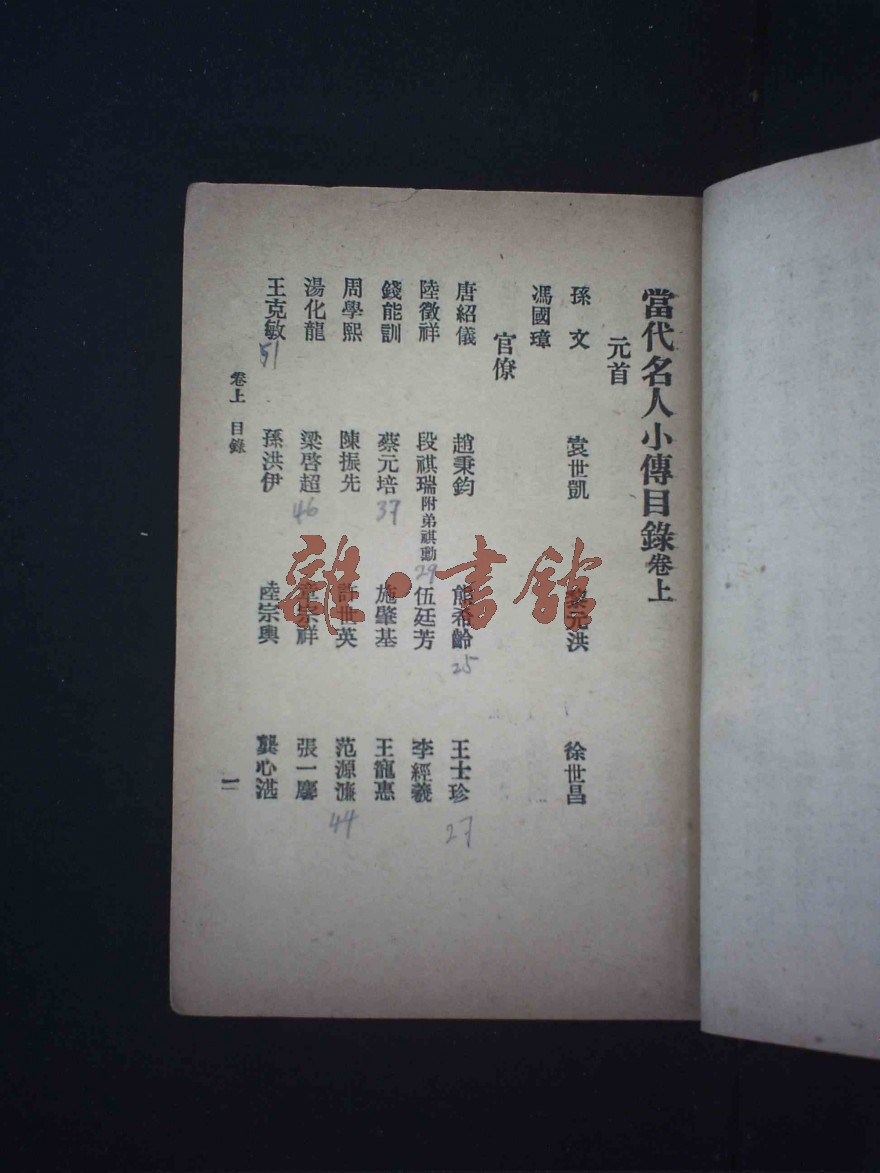 當代名人小傳目錄卷上
元首
孫文 袁世凱 黎元洪 徐世昌
馮國璋
官僚
唐紹儀 趙秉鈞 熊希齡 25 王士珍 27
陸徵祥 段祺瑞附弟祺勛 29 伍廷芳 李經羲
錢能訓 蔡元培 37 施肇基 王寵惠
周學熙 陳振先 許世英 范源濂 44
湯化龍 梁啓超 46 章宗祥 張一麐
王克敏 51 孫洪伊 陸宗輿 龔心湛
卷上 目錄 一
雜·書館